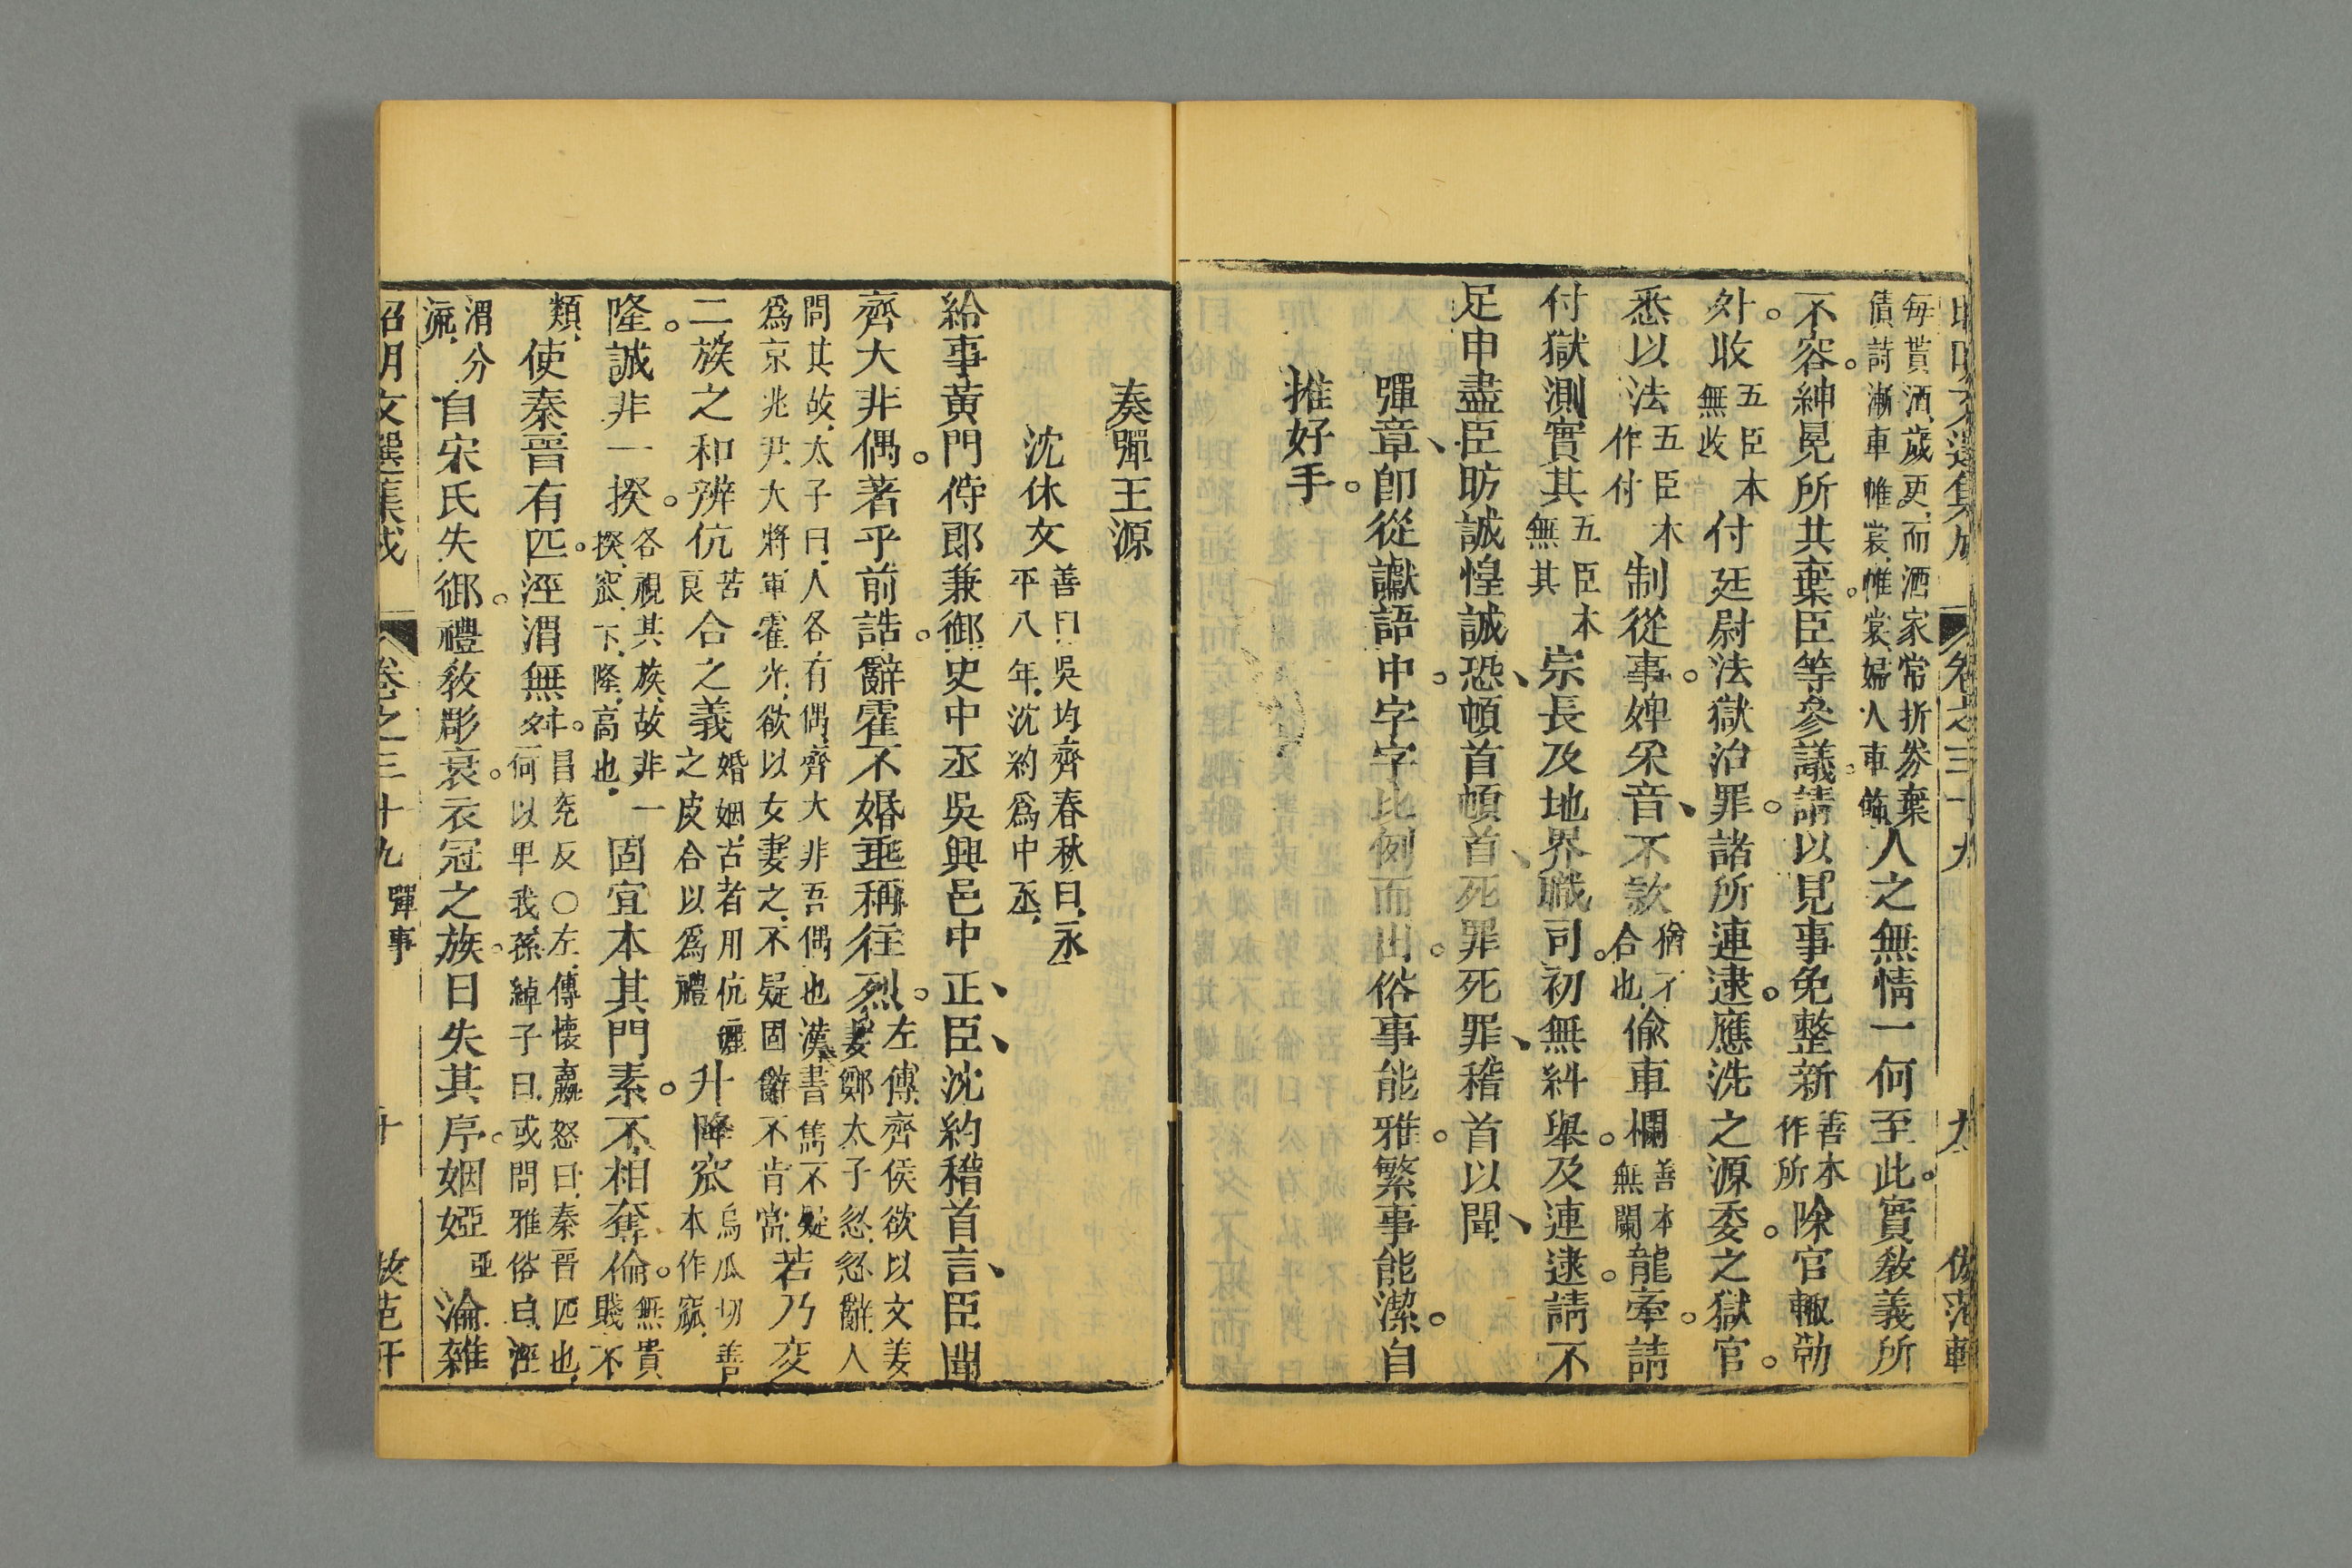 昭明文選集成 卷之三十九 九 倣范軒
每貰酒歲更而酒家常折券棄
債詩漸車帷裳帷裳婦人車飾人之無情一何至此實敎義所
不容紳冕所共棄臣等參議請以見事免整新善本作所除官輙勒
外收五臣本無收付廷尉法獄治罪諸所連逮應洗之源委之獄官
悉以法五臣本作付制從事婢采音不款猶不合也偷車欄善本無闌龍牽請
付獄測實其五臣本無其宗長及地界職司初無糾舉及連逮請不
足申盡臣昉誠惶誠恐頓首頓首死罪死罪稽首以聞
彈章卽從讞語中字字比例而出俗事能雅繁事能潔自
推好手
奏彈王源
沈休文善曰吳均齊春秋曰永平八年沈約爲中丞
給事黃門侍郎兼御史中丞吳興邑中正臣沈約稽首言臣聞
齊大非偶著乎前誥辭霍不婚垂稱往烈左傳齊侯欲以文姜妻鄭太子忽忽辭人
問其故太子曰人各有偶齊大非吾偶也漢書雋不疑
爲京兆尹大將軍霍光欲以女妻之不疑固辭不肯當若乃交
二族之和辨伉苦艮合之義婚姻古者用伉儷之皮合以爲禮升降窊烏瓜切善本作窳
隆誠非一揆各視其族故非一揆窊下隆高也固宜本其門素不相奪倫無貴賤不
類使秦晉有匹涇渭無舛昌兖反○左傳懷嬴怒曰秦晉匹也何以卑我孫綽子曰或問雅俗曰涇
渭分流自宋氏失御禮敎彫衰衣冠之族日失其序姻婭亞淪雜
昭明文選集成 卷之三十九 彈事 十 倣范軒